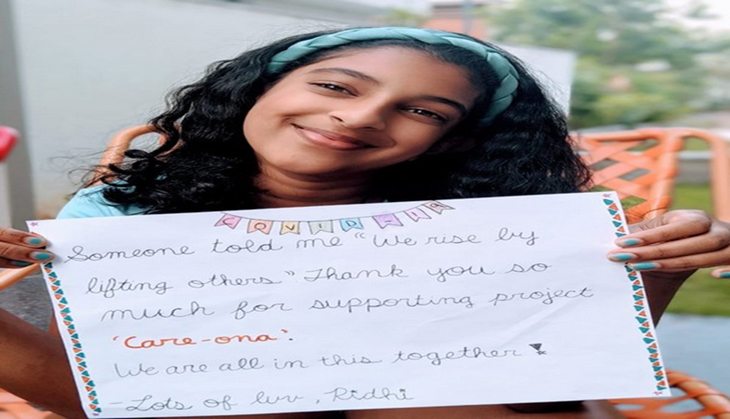 COVID-19
Someone told me "We rise by
lifting others" Thank you so
much for supporting project
'Care-ona'.
We are all in this together!
-Lots of luv, Ridhi